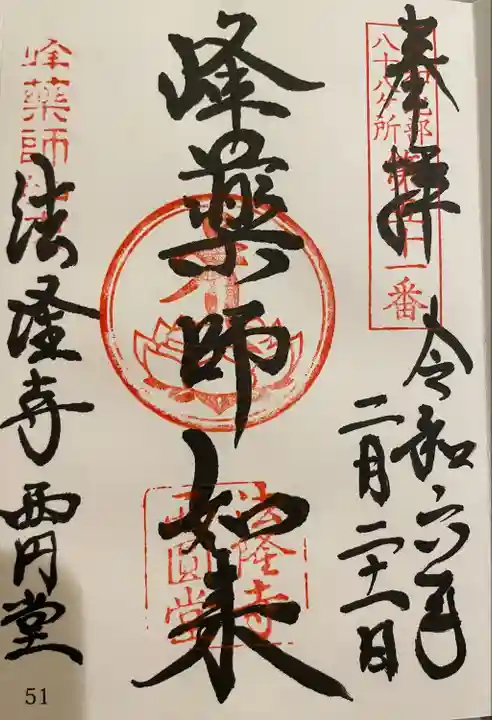 奉拝
八十八ケ所
第四十一番
令和六年
二月二十一日
峰薬師如来
法隆寺
西圓堂
峰薬師
法隆寺西円堂
51